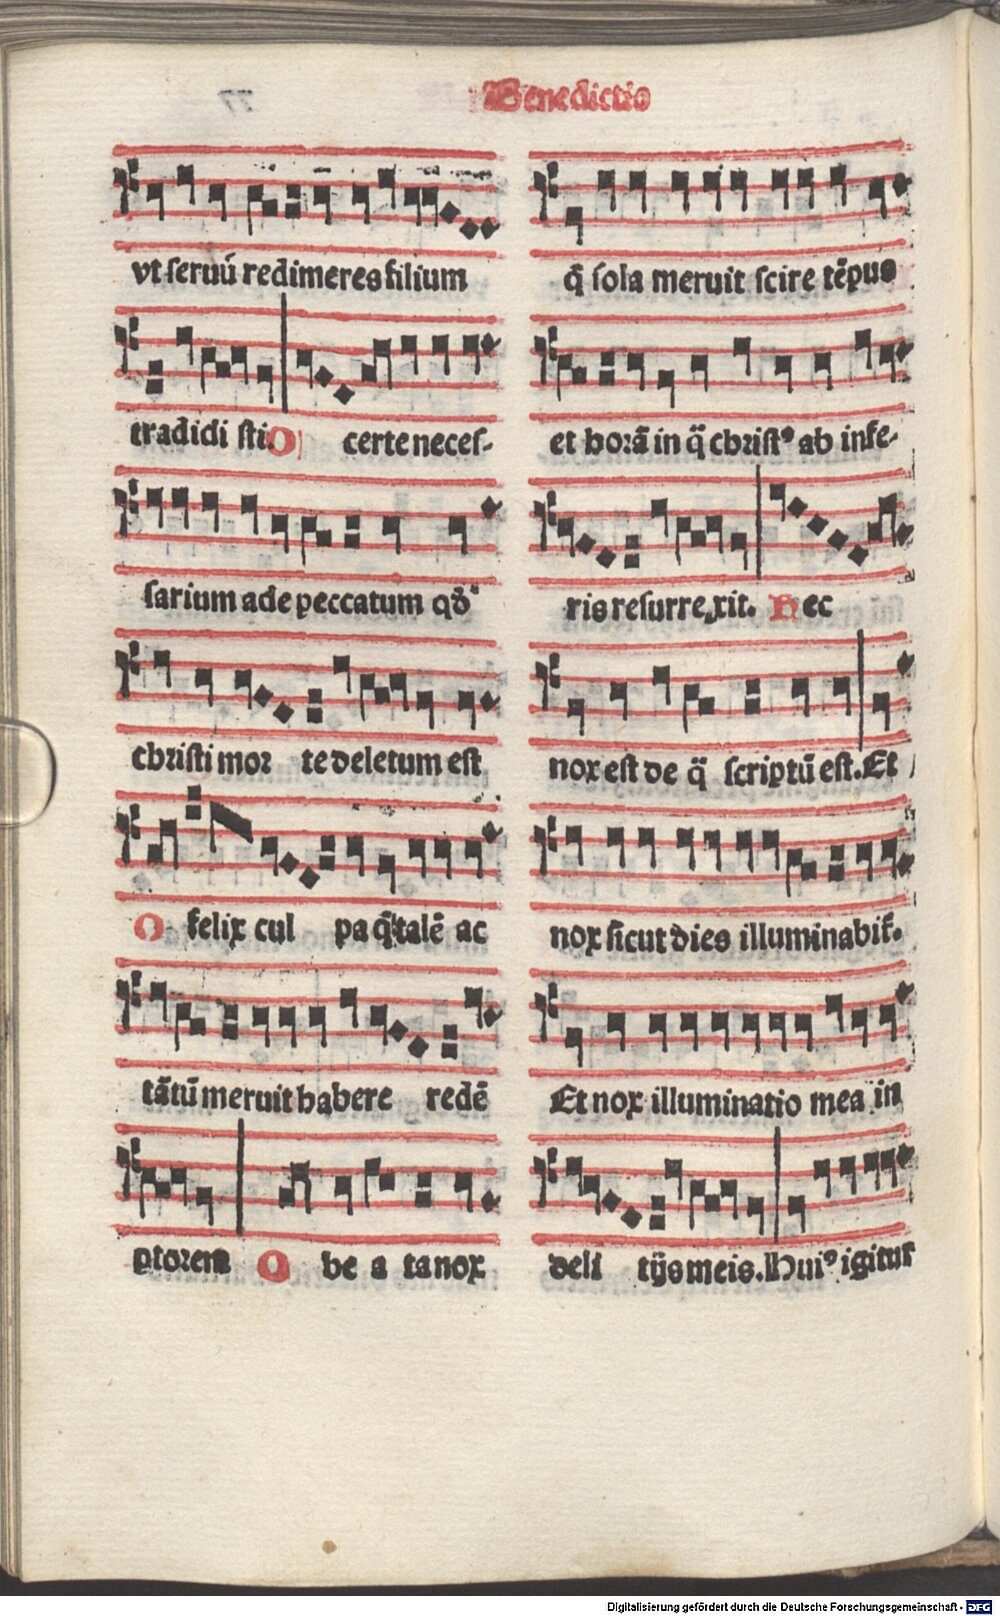 Benedictio
vt seruū redimeres filium
tradidi sti. O certe neces-
sarium ade peccatum qđ
christi mor te deletum est
O felix cul pa q̄ talē ac
tātū meruit habere redē
ptorem O be a ta nox
q̄ sola meruit scire tēpus
et horā in q̄ christꝰ ab infe-
ris resurrexit. Hec
nox est de q̄ scriptū est. Et
nox sicut dies illuminabit̄.
Et nox illuminatio mea in
deli tijs meis. Huiꝰ igitur
Digitalisierung gefördert durch die Deutsche Forschungsgemeinschaft - DFG